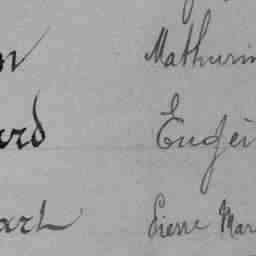 n Mathurin
ard Eugèn
art Pierre Mar